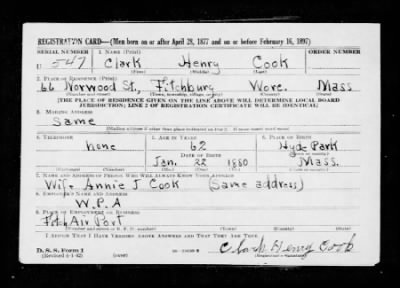 REGISTRATION CARD—(Men born on or after April 28, 1877 and on or before February 16, 1897)
SERIAL NUMBER 1. NAME (Print) ORDER NUMBER
U 547 Clark Henry Cook
(First) (Middle) (Last)
2. PLACE OF RESIDENCE (Print)
66 Norwood St., Fitchburg Worc. Mass
(Number and street) (Town, township, village, or city) (County) (State)
[THE PLACE OF RESIDENCE GIVEN ON THE LINE ABOVE WILL DETERMINE LOCAL BOARD
JURISDICTION; LINE 2 OF REGISTRATION CERTIFICATE WILL BE IDENTICAL]
3. MAILING ADDRESS
Same
[Mailing address if other than place indicated on line 2. If same insert word same]
4. TELEPHONE 5. AGE IN YEARS 6. PLACE OF BIRTH
none 62 Hyde Park
DATE OF BIRTH
Jan. 22 1880 Mass.
(Mo.) (Day) (Yr.)
7. NAME AND ADDRESS OF PERSON WHO WILL ALWAYS KNOW YOUR ADDRESS
Wife Annie J Cook (Same address)
8. EMPLOYER'S NAME AND ADDRESS
W.P.A
9. PLACE OF EMPLOYMENT OR BUSINESS
Air Port
I AFFIRM THAT I HAVE VERIFIED ABOVE ANSWERS AND THAT THEY ARE TRUE.
D. S. S. Form 1
(Revised 4-1-42) (over) Clark Henry Cook
(Registrant's signature)